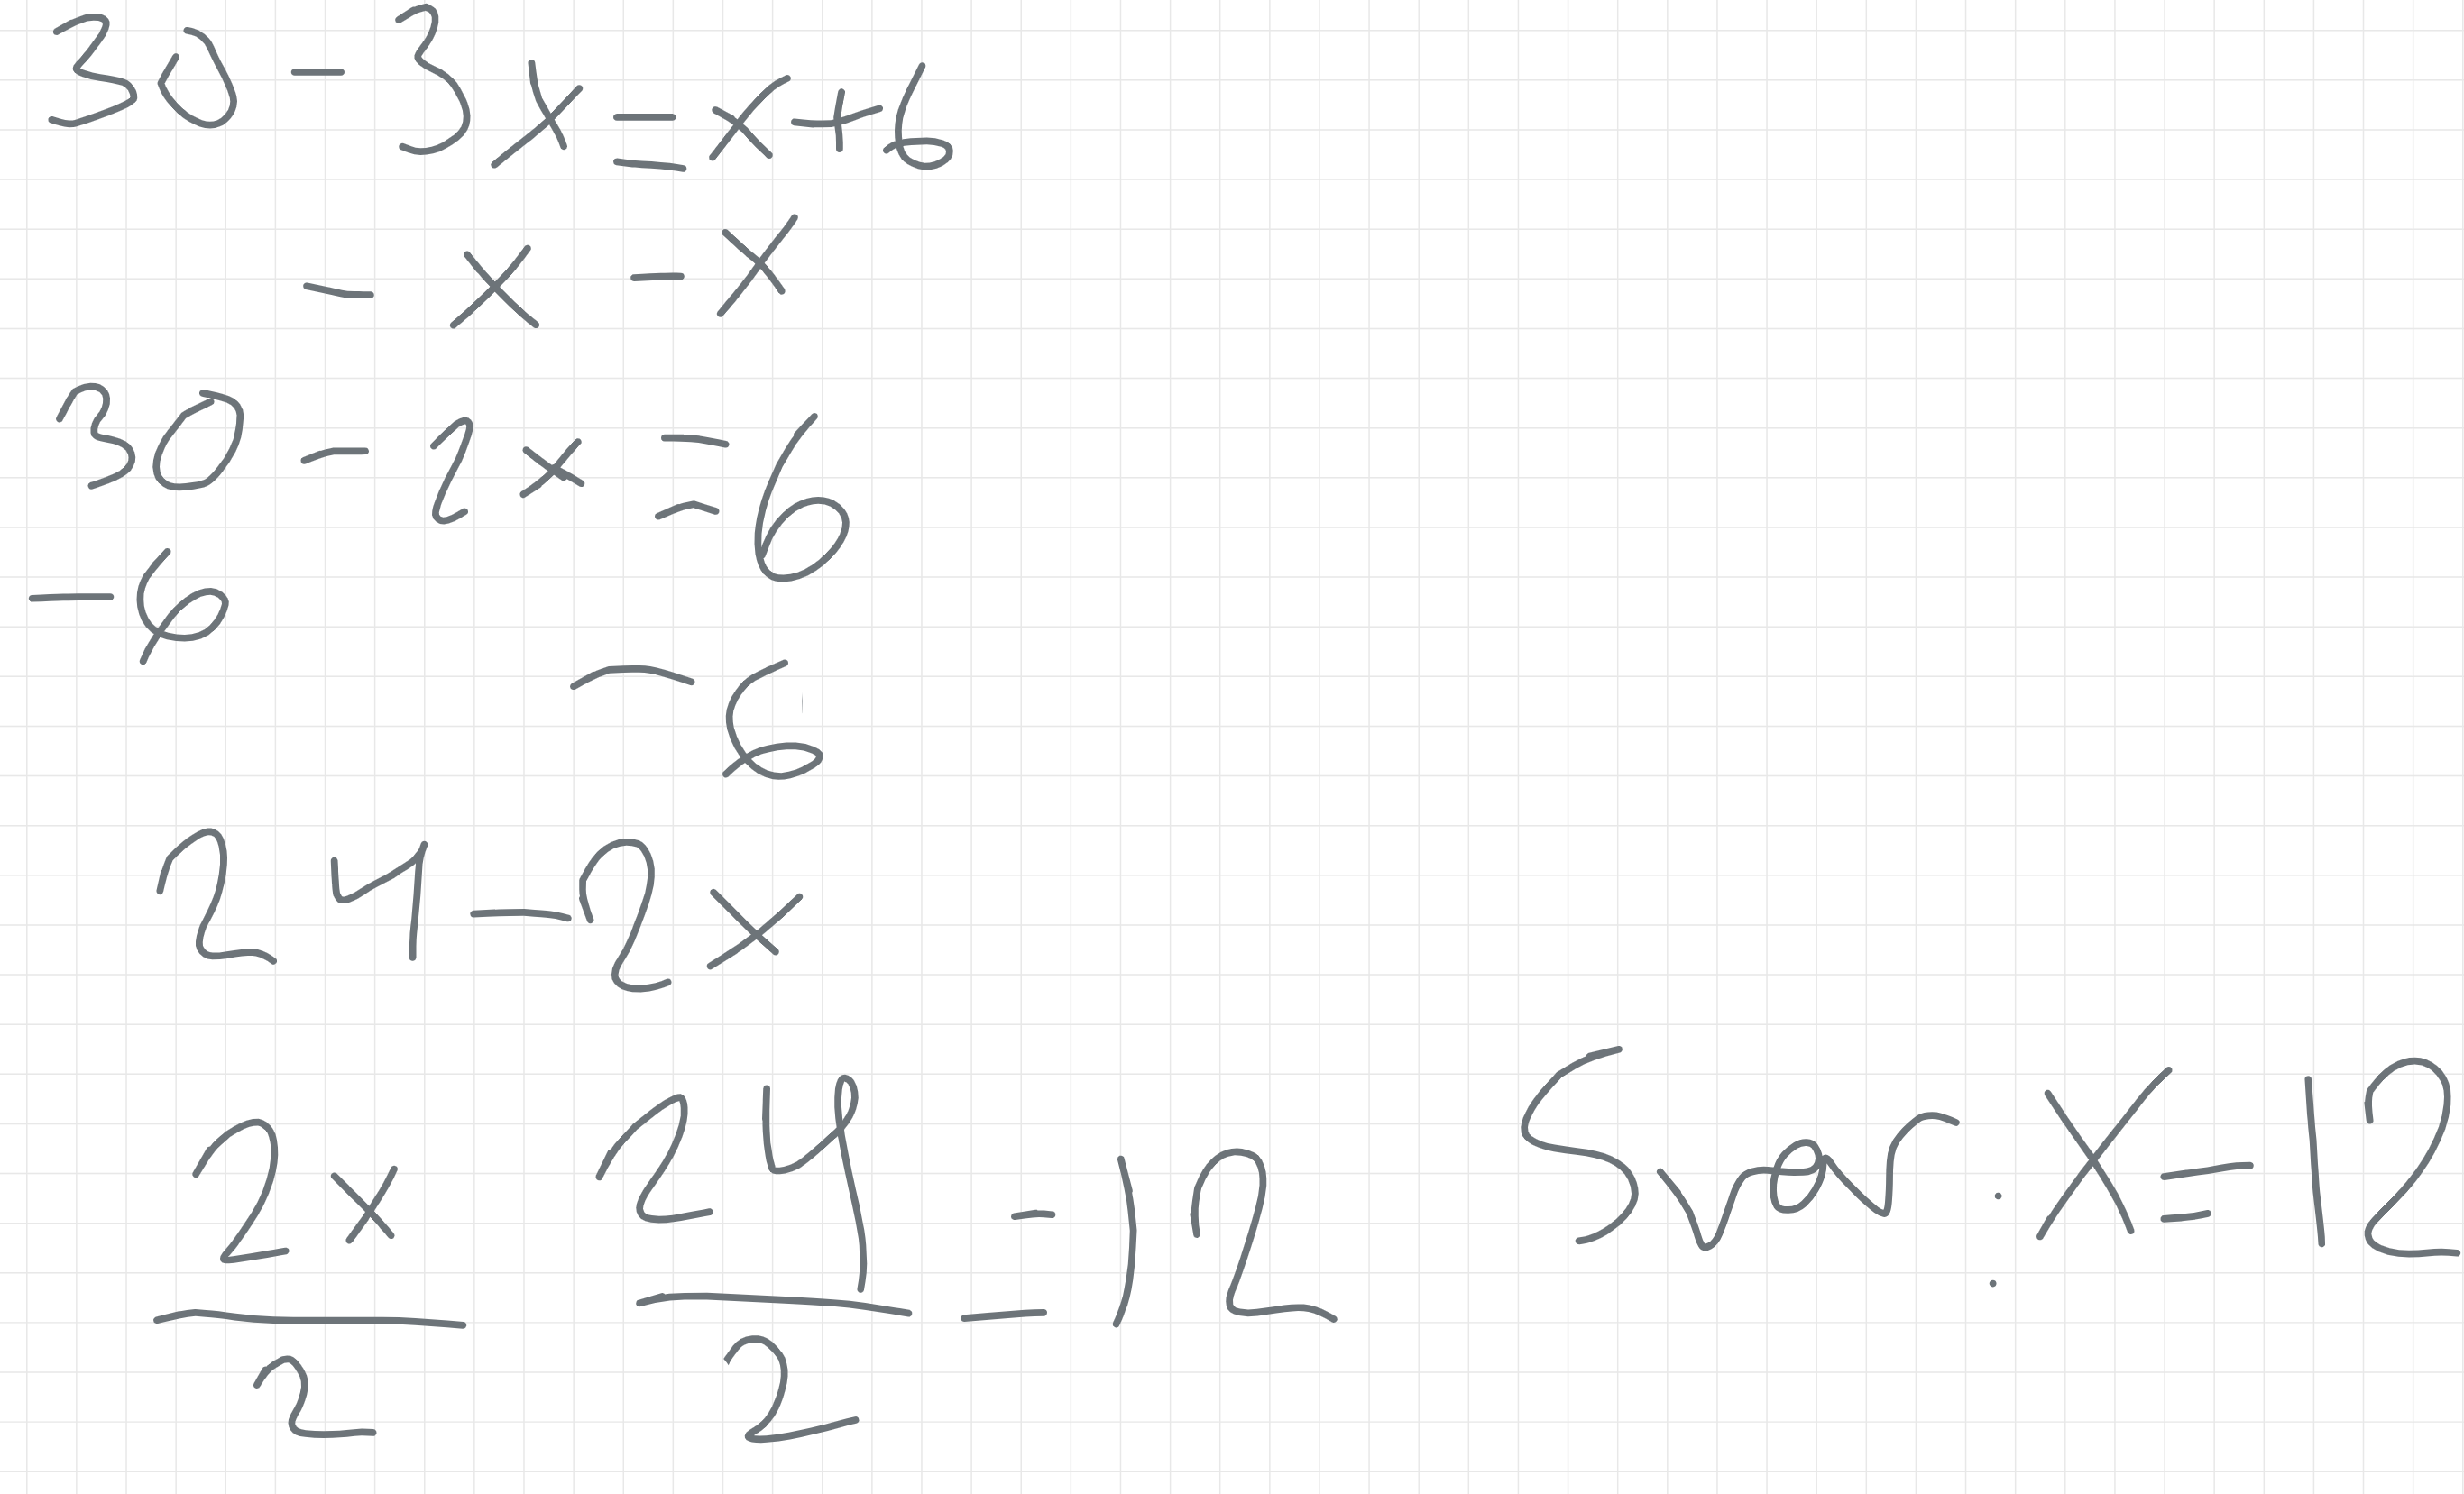 30 - 3x = x + 6
- x - x
30 - 2x = 6
- 6
- 6
24 - 2x
2x/2 24/2 = 12 Svar: x = 12